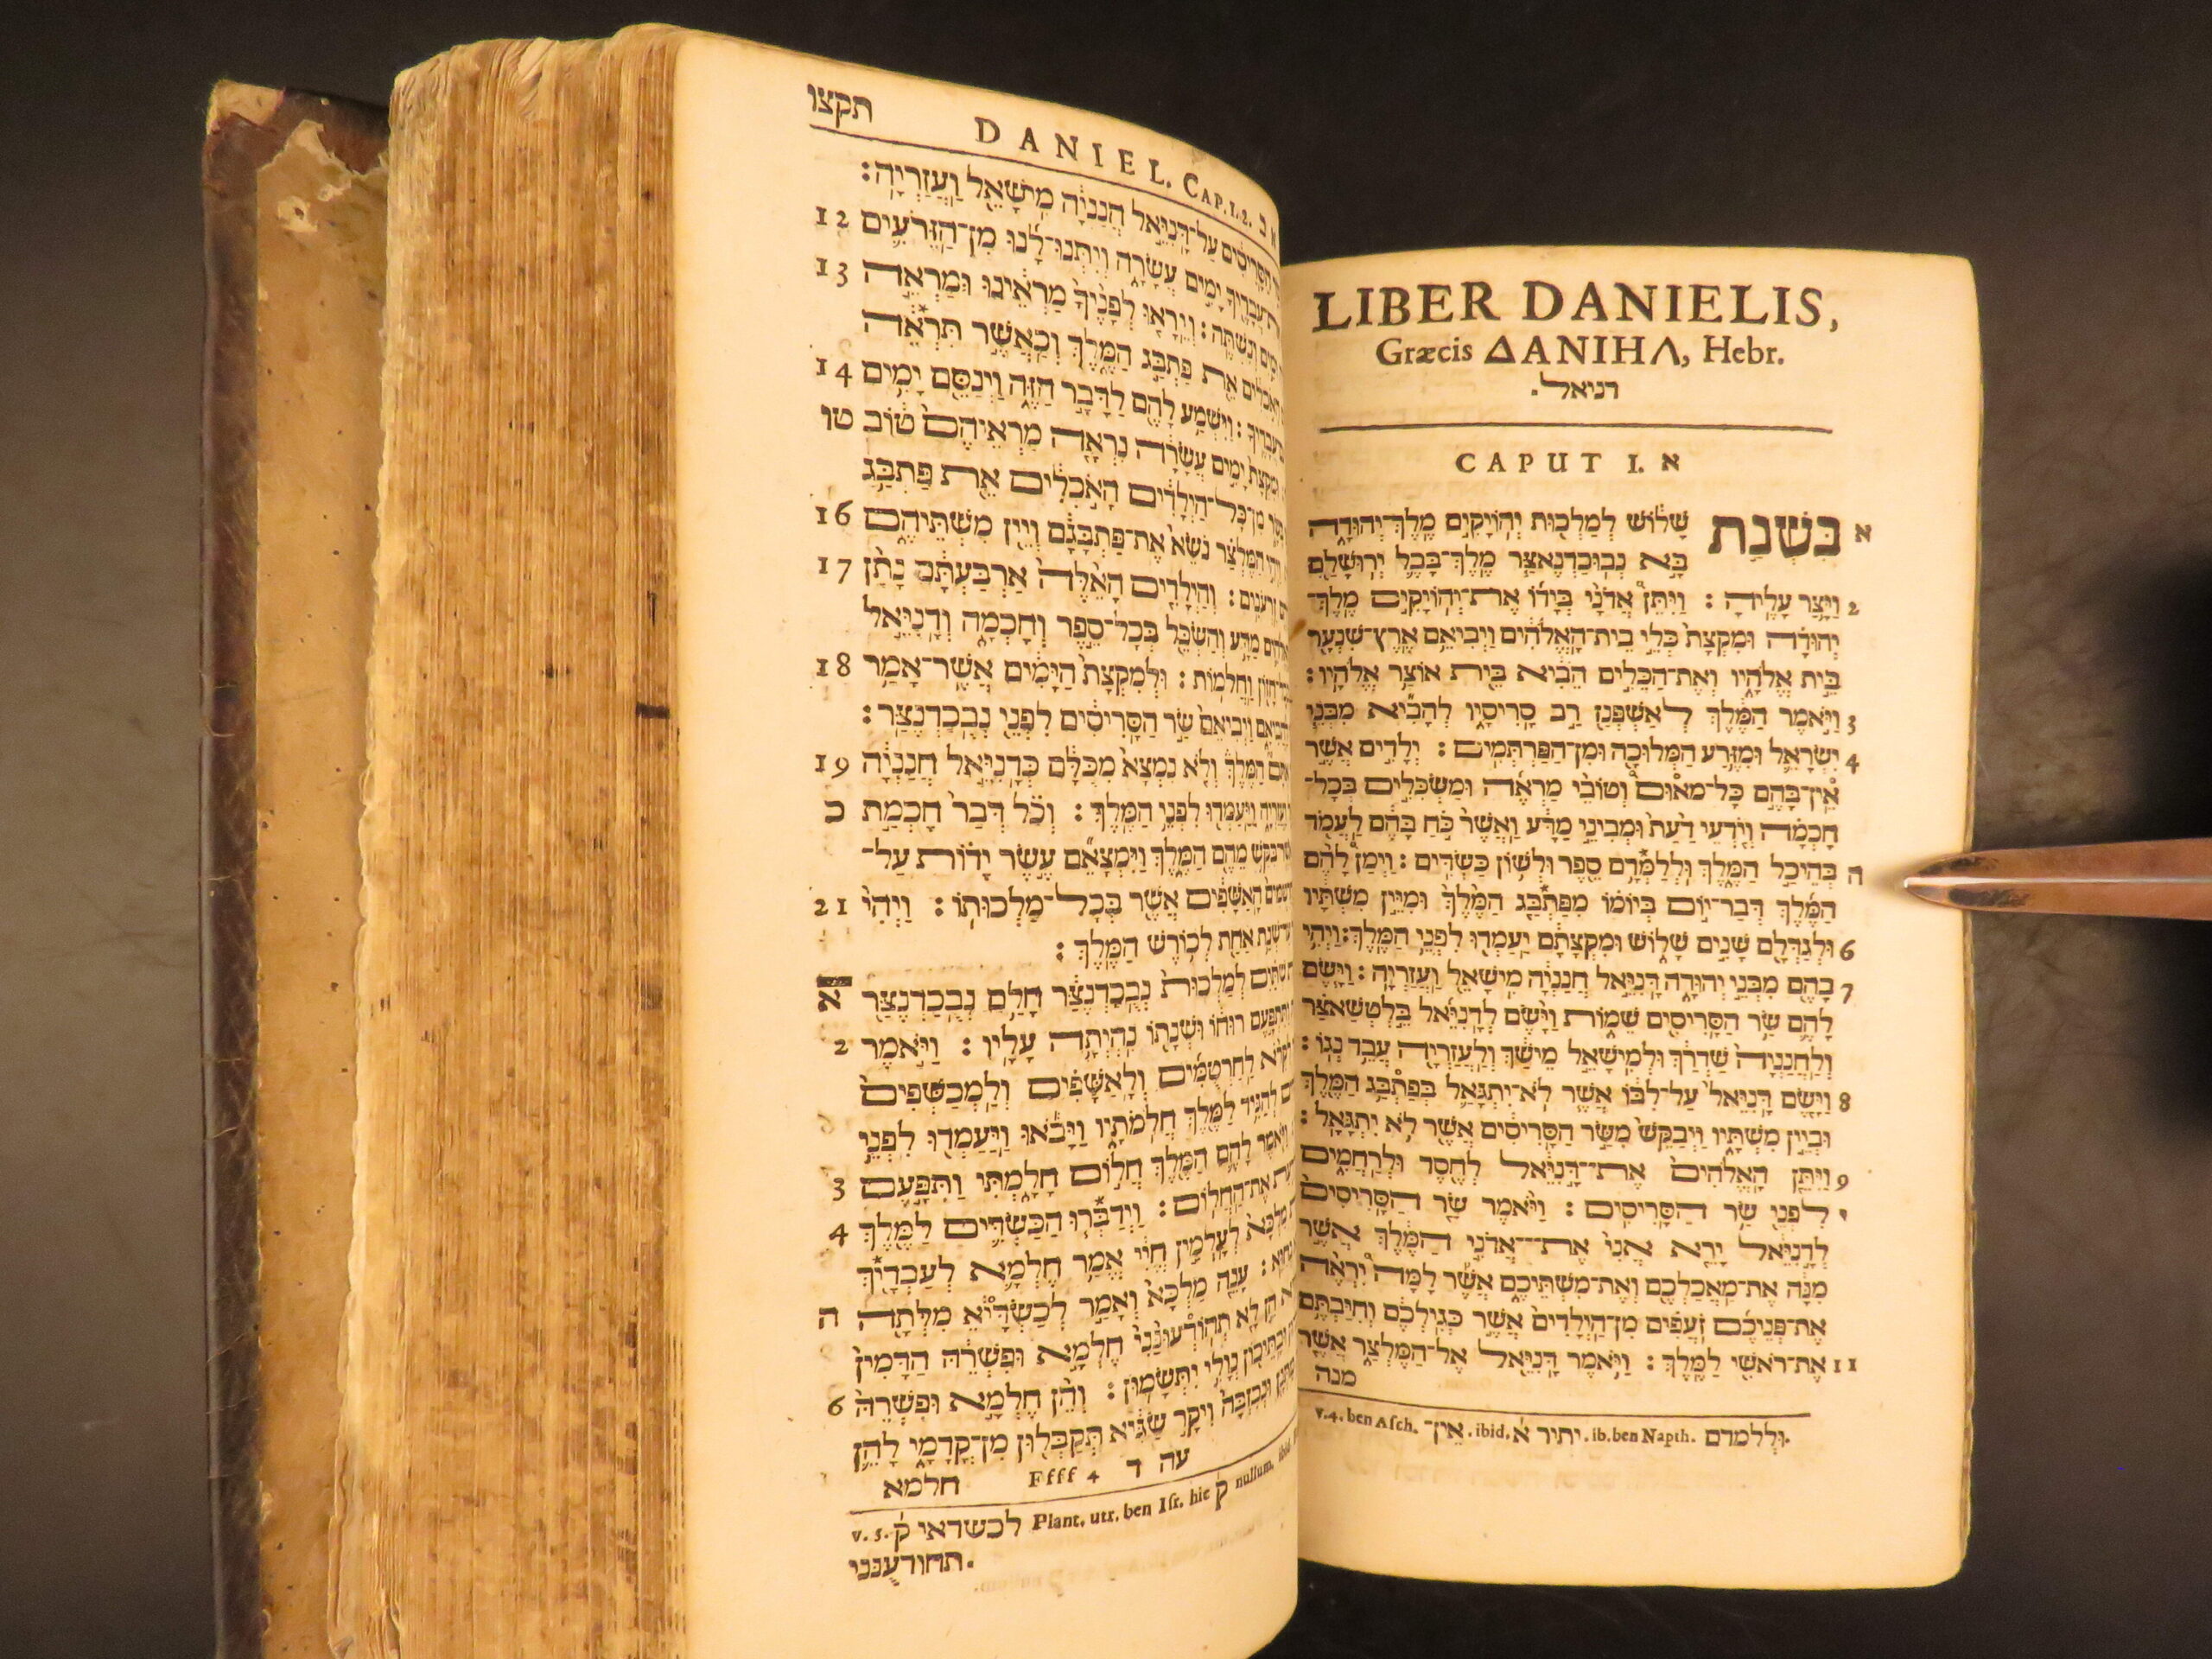 LIBER DANIELIS,
Græcis ΔΑΝΙΗΛ, Hebr.
דניאל.
CAPUT I. א
א בִּשְׁנַת שָׁלוֹשׁ לְמַלְכוּת יְהוֹיָקִים מֶלֶךְ־יְהוּדָה
בָּא נְבוּכַדְנֶאצַּר מֶלֶךְ־בָּבֶל יְרוּשָׁלַם
2 וַיָּצַר עָלֶיהָ : וַיִּתֵּן אֲדֹנָי בְּיָדוֹ אֶת־יְהוֹיָקִים מֶלֶךְ־
יְהוּדָה וּמִקְצָת כְּלֵי בֵית־הָאֱלֹהִים וַיְבִיאֵם אֶרֶץ־שִׁנְעָר
בֵּית אֱלֹהָיו וְאֶת־הַכֵּלִים הֵבִיא בֵּית אוֹצַר אֱלֹהָיו :
3 וַיֹּאמֶר הַמֶּלֶךְ לְאַשְׁפְּנַז רַב סָרִיסָיו לְהָבִיא מִבְּנֵי
4 יִשְׂרָאֵל וּמִזֶּרַע הַמְּלוּכָה וּמִן־הַפַּרְתְּמִים : יְלָדִים אֲשֶׁר
אֵין־בָּהֶם כָּל־מאוּם וְטוֹבֵי מַרְאֶה וּמַשְׂכִּלִים בְּכָל־
חָכְמָה וְיֹדְעֵי דַעַת וּמְבִינֵי מַדָּע וַאֲשֶׁר כֹּחַ בָּהֶם לַעֲמֹד
ה בְּהֵיכַל הַמֶּלֶךְ וּלְלַמְּדָם סֵפֶר וּלְשׁוֹן כַּשְׂדִּים : וַיְמַן לָהֶם
הַמֶּלֶךְ דְּבַר־יוֹם בְּיוֹמוֹ מִפַּתְבַּג הַמֶּלֶךְ וּמִיֵּין מִשְׁתָּיו
6 וּלְגַדְּלָם שָׁנִים שָׁלוֹשׁ וּמִקְצָתָם יַעַמְדוּ לִפְנֵי הַמֶּלֶךְ : וַיְהִי
7 בָהֶם מִבְּנֵי יְהוּדָה דָּנִיֵּאל חֲנַנְיָה מִישָׁאֵל וַעֲזַרְיָה : וַיָּשֶׂם
לָהֶם שַׂר הַסָּרִיסִים שֵׁמוֹת וַיָּשֶׂם לְדָנִיֵּאל בֵּלְטְשַׁאצַּר
וְלַחֲנַנְיָה שַׁדְרַךְ וּלְמִישָׁאֵל מֵישַׁךְ וְלַעֲזַרְיָה עֲבֵד נְגוֹ :
8 וַיָּשֶׂם דָּנִיֵּאל עַל־לִבּוֹ אֲשֶׁר לֹא־יִתְגָּאַל בְּפַתְבַּג הַמֶּלֶךְ
וּבְיֵין מִשְׁתָּיו וַיְבַקֵּשׁ מִשַּׂר הַסָּרִיסִים אֲשֶׁר לֹא יִתְגָּאָל :
9 וַיִּתֵּן הָאֱלֹהִים אֶת־דָּנִיֵּאל לְחֶסֶד וּלְרַחֲמִים
י לִפְנֵי שַׂר הַסָּרִיסִים : וַיֹּאמֶר שַׂר הַסָּרִיסִים
לְדָנִיֵּאל יָרֵא אֲנִי אֶת־אֲדֹנִי הַמֶּלֶךְ אֲשֶׁר
מִנָּה אֶת־מַאֲכַלְכֶם וְאֶת־מִשְׁתֵּיכֶם אֲשֶׁר לָמָּה יִרְאֶה
אֶת־פְּנֵיכֶם זֹעֲפִים מִן־הַיְלָדִים אֲשֶׁר כְּגִילְכֶם וְחִיַּבְתֶּם
11 אֶת־רֹאשִׁי לַמֶּלֶךְ : וַיֹּאמֶר דָּנִיֵּאל אֶל־הַמֶּלְצַר אֲשֶׁר
מנה
v. 4. ben Asch. אֵין־. ibid. יתיר א. ib. ben Napth. וּללמדם.
תקצו DANIEL. CAP. 1. 2. ב א
הַסָּרִיסִים עַל־דָּנִיֵּאל חֲנַנְיָה מִישָׁאֵל וַעֲזַרְיָה :
עֲבָדֶיךָ יָמִים עֲשָׂרָה וְיִתְּנוּ־לָנוּ מִן־הַזֵּרֹעִים 12
וְנִשְׁתֶּה : וְיֵרָאוּ לְפָנֶיךָ מַרְאֵינוּ וּמַרְאֵה 13
אֵת פַּתְבַּג הַמֶּלֶךְ וְכַאֲשֶׁר תִּרְאֵה
וַיִּשְׁמַע לָהֶם לַדָּבָר הַזֶּה וַיְנַסֵּם יָמִים 14
יָמִים עֲשָׂרָה נִרְאָה מַרְאֵיהֶם טוֹב טו
מִן־כָּל־הַיְלָדִים הָאֹכְלִים אֵת פַּתְבַּג
הַמֶּלְצַר נֹשֵׂא אֶת־פַּתְבָּגָם וְיֵין מִשְׁתֵּיהֶם 16
זֵרְעֹנִים : וְהַיְלָדִים הָאֵלֶּה אַרְבַּעְתָּם נָתַן 17
מַדָּע וְהַשְׂכֵּל בְּכָל־סֵפֶר וְחָכְמָה וְדָנִיֵּאל
חָזוֹן וַחֲלֹמוֹת : וּלְמִקְצָת הַיָּמִים אֲשֶׁר־אָמַר 18
וַיְבִיאֵם שַׂר הַסָּרִיסִים לִפְנֵי נְבֻכַדְנֶצַּר :
הַמֶּלֶךְ וְלֹא נִמְצָא מִכֻּלָּם כְּדָנִיֵּאל חֲנַנְיָה 19
וַיַּעַמְדוּ לִפְנֵי הַמֶּלֶךְ : וְכֹל דְּבַר חָכְמַת כ
מֵהֶם הַמֶּלֶךְ וַיִּמְצָאֵם עֶשֶׂר יָדוֹת עַל־
הָאַשָּׁפִים אֲשֶׁר בְּכָל־מַלְכוּתוֹ : וַיְהִי 21
שְׁנַת אַחַת לְכוֹרֶשׁ הַמֶּלֶךְ :
שְׁתַּיִם לְמַלְכוּת נְבֻכַדְנֶצַּר חָלַם נְבֻכַדְנֶצַּר א
וַתִּתְפָּעֶם רוּחוֹ וּשְׁנָתוֹ נִהְיְתָה עָלָיו : וַיֹּאמֶר 2
לִקְרֹא לַחַרְטֻמִּים וְלָאַשָּׁפִים וְלַמְכַשְּׁפִים
לְהַגִּיד לַמֶּלֶךְ חֲלֹמֹתָיו וַיָּבֹאוּ וַיַּעַמְדוּ לִפְנֵי
וַיֹּאמֶר לָהֶם הַמֶּלֶךְ חֲלוֹם חָלָמְתִּי וַתִּפָּעֶם 3
אֶת־הַחֲלוֹם : וַיְדַבְּרוּ הַכַּשְׂדִּים לַמֶּלֶךְ 4
מַלְכָּא לְעָלְמִין חֱיִי אֱמַר חֶלְמָא לְעַבְדָיךְ
עָנֵה מַלְכָּא וְאָמַר לְכַשְׂדָּיֵא מִלְּתָה ה
הֵן לָא תְהוֹדְעוּנַּנִי חֶלְמָא וּפִשְׁרֵהּ הַדָּמִין
נְוָלִי יִתְּשָׂמוּן : וְהֵן חֶלְמָא וּפִשְׁרֵהּ 6
וּנְבִזְבָּה וִיקָר שַׂגִּיא תְּקַבְּלוּן מִן־קֳדָמָי לָהֵן
עה ד Ffff 4 חלמא
v. 5. לכשדאי ק׳ Plant. utr. ben Isr. hic ק nullum, ibid.
תהודעננני.